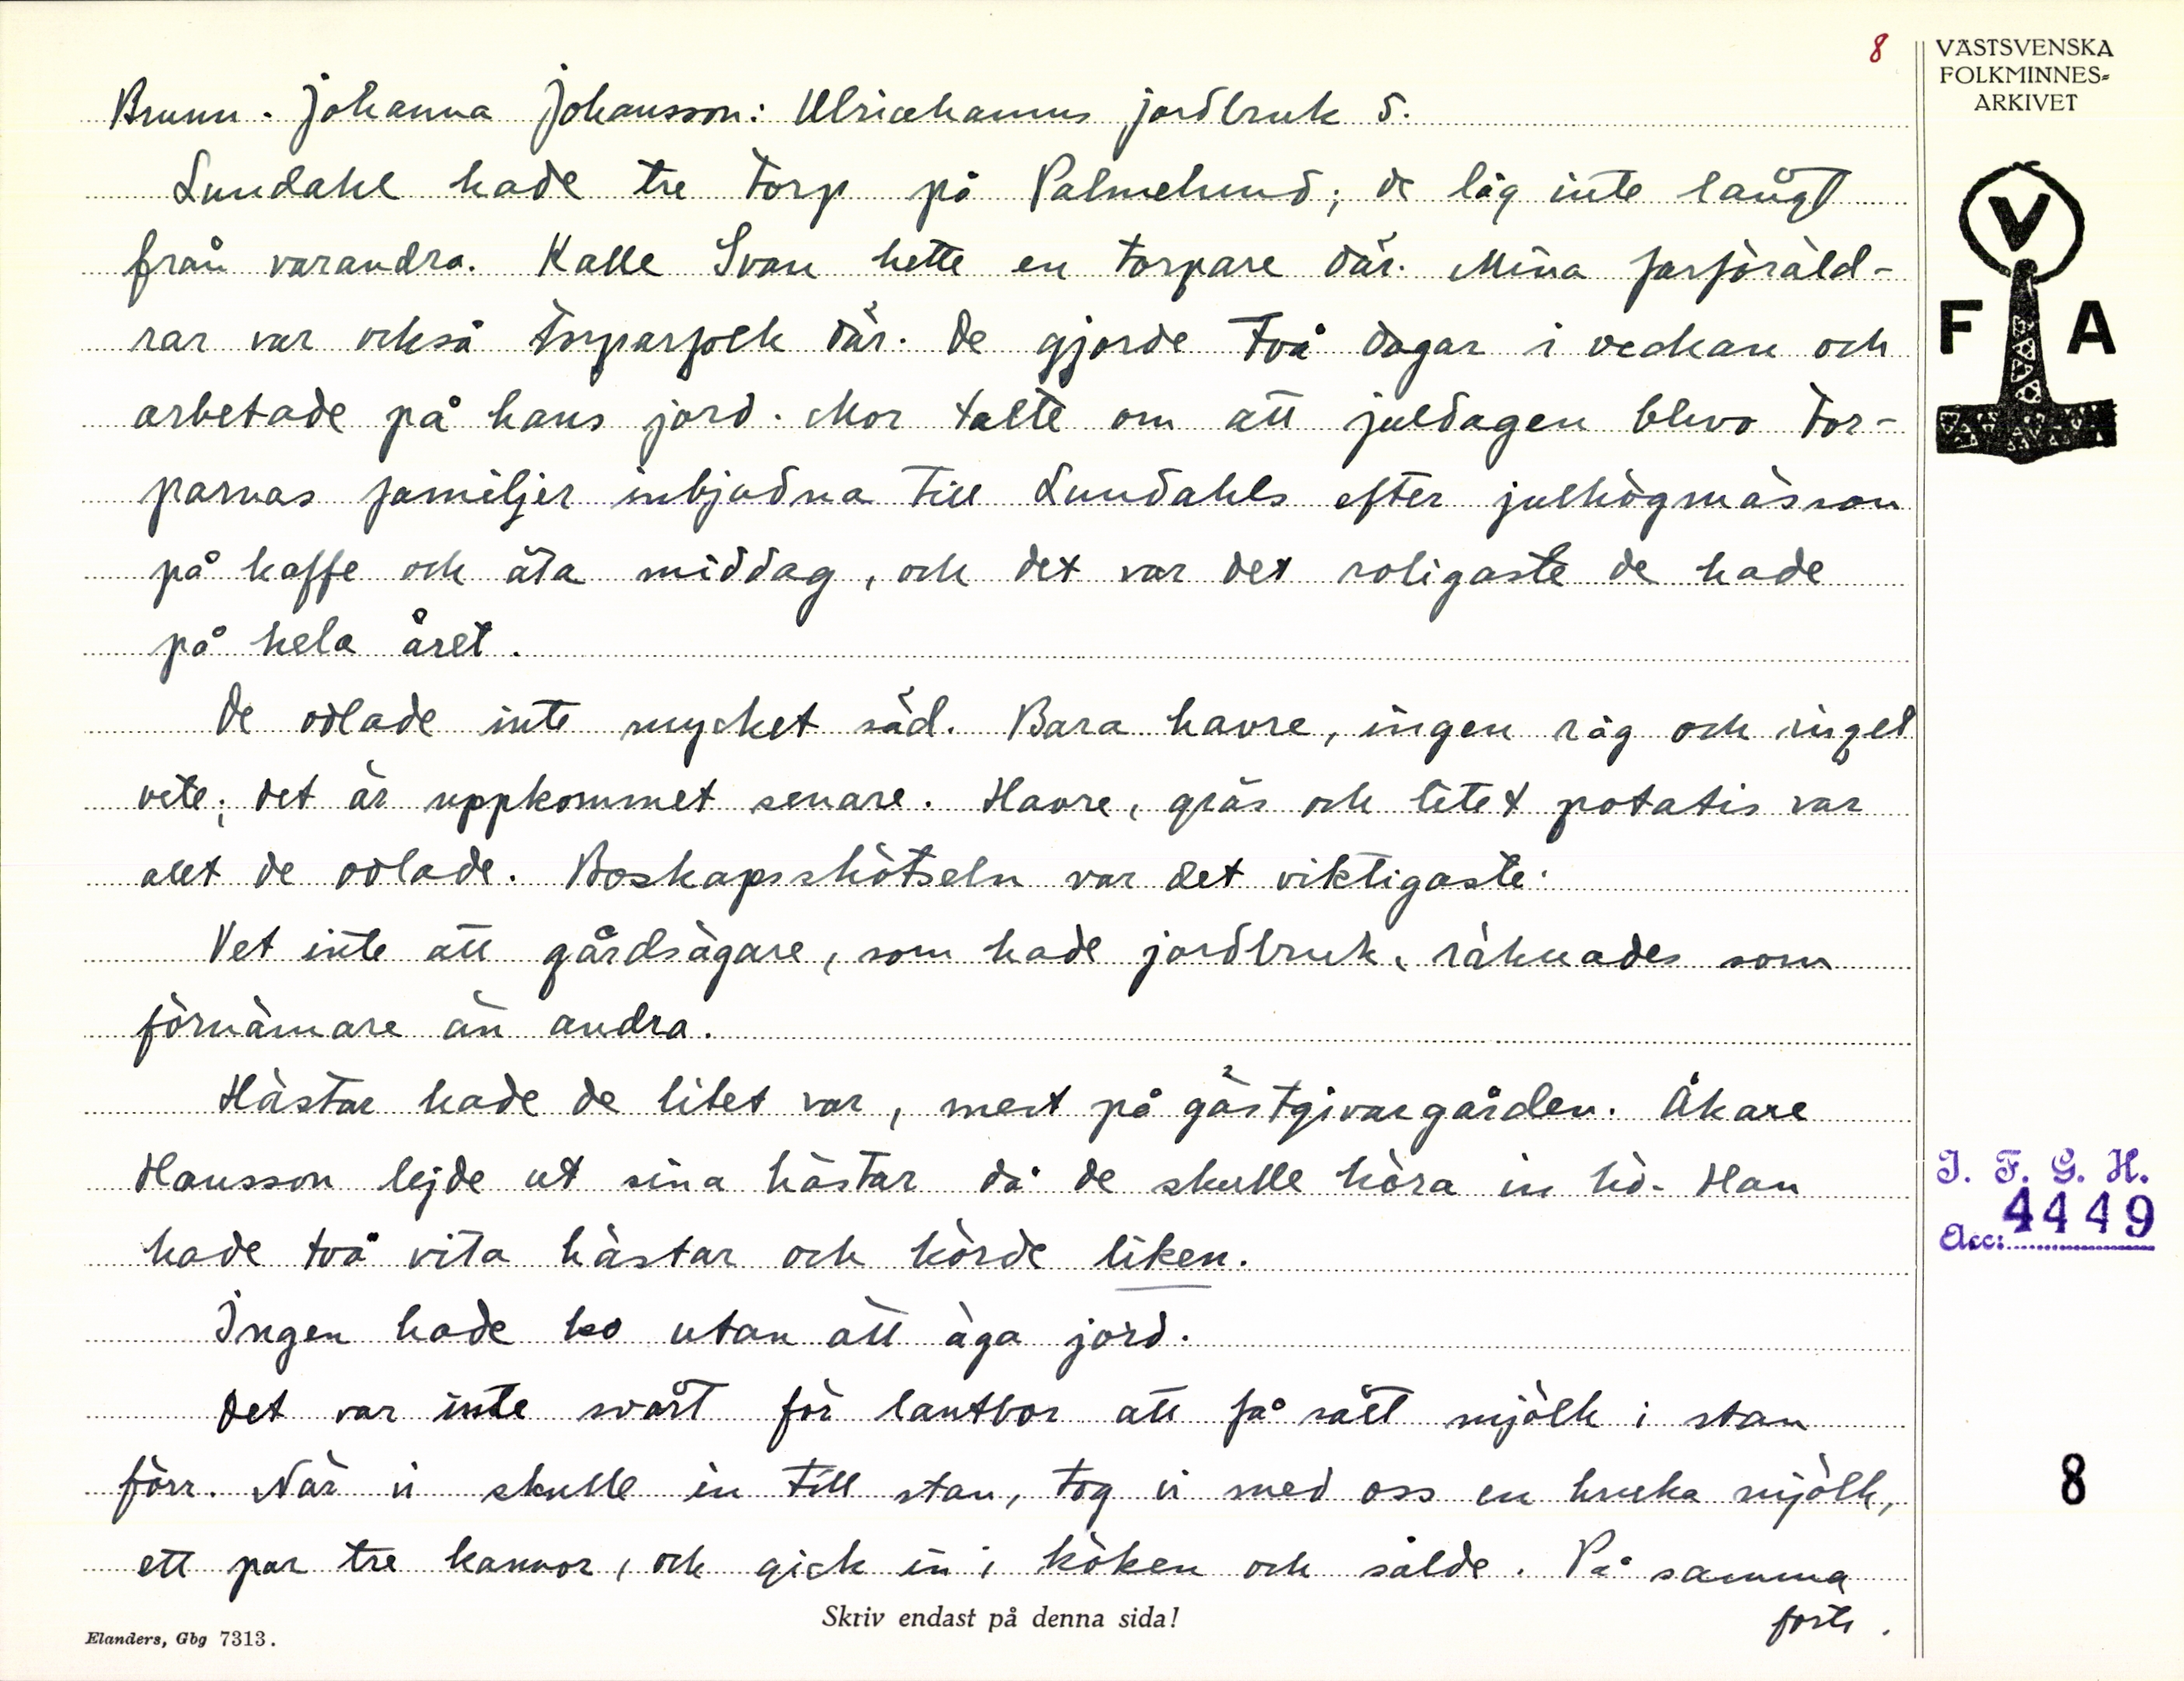 8
VÄSTSVENSKA
FOLKMINNES-
ARKIVET
Brunn. Johanna Johansson: Ulricehamns jordbruk 5.
Lundahl hade tre torp på Palmelund; de låg inte långt
från varandra. Kalle Svan hette en torpare där. Mina farföräld-
rar var också torparfolk där. De gjorde två dagar i veckan och
arbetade på hans jord. Mor talte om att juldagen blevo tor-
parnas familjer inbjudna till Lundahls efter julhögmässan
på kaffe och äta middag, och det var det roligaste de hade
på hela året.
De odlade inte mycket säd. Bara havre, ingen råg och inget
vete; det är uppkommet senare. Havre, gräs och litet potatis var
allt de odlade. Boskapsskötseln var det viktigaste.
Vet inte att gårdsägare, som hade jordbruk, räknades som
förnämare än andra.
Hästar hade de litet var, mest på gästgivargården. Åkare
Hansson lejde ut sina hästar då de skulle köra in hö. Han
hade två vita hästar och körde liken.
Ingen hade ko utan att äga jord.
Det var inte svårt för lantbor att få sält mjölk i stan
förr. När vi skulle in till stan, tog vi med oss en kruka mjölk,
ett par tre kannor, och gick in i köken och sålde. På samma
forts.
V
F A
I. F. G. H.
Acc: 4449
8
Skriv endast på denna sida!
Elanders, Gbg 7313.